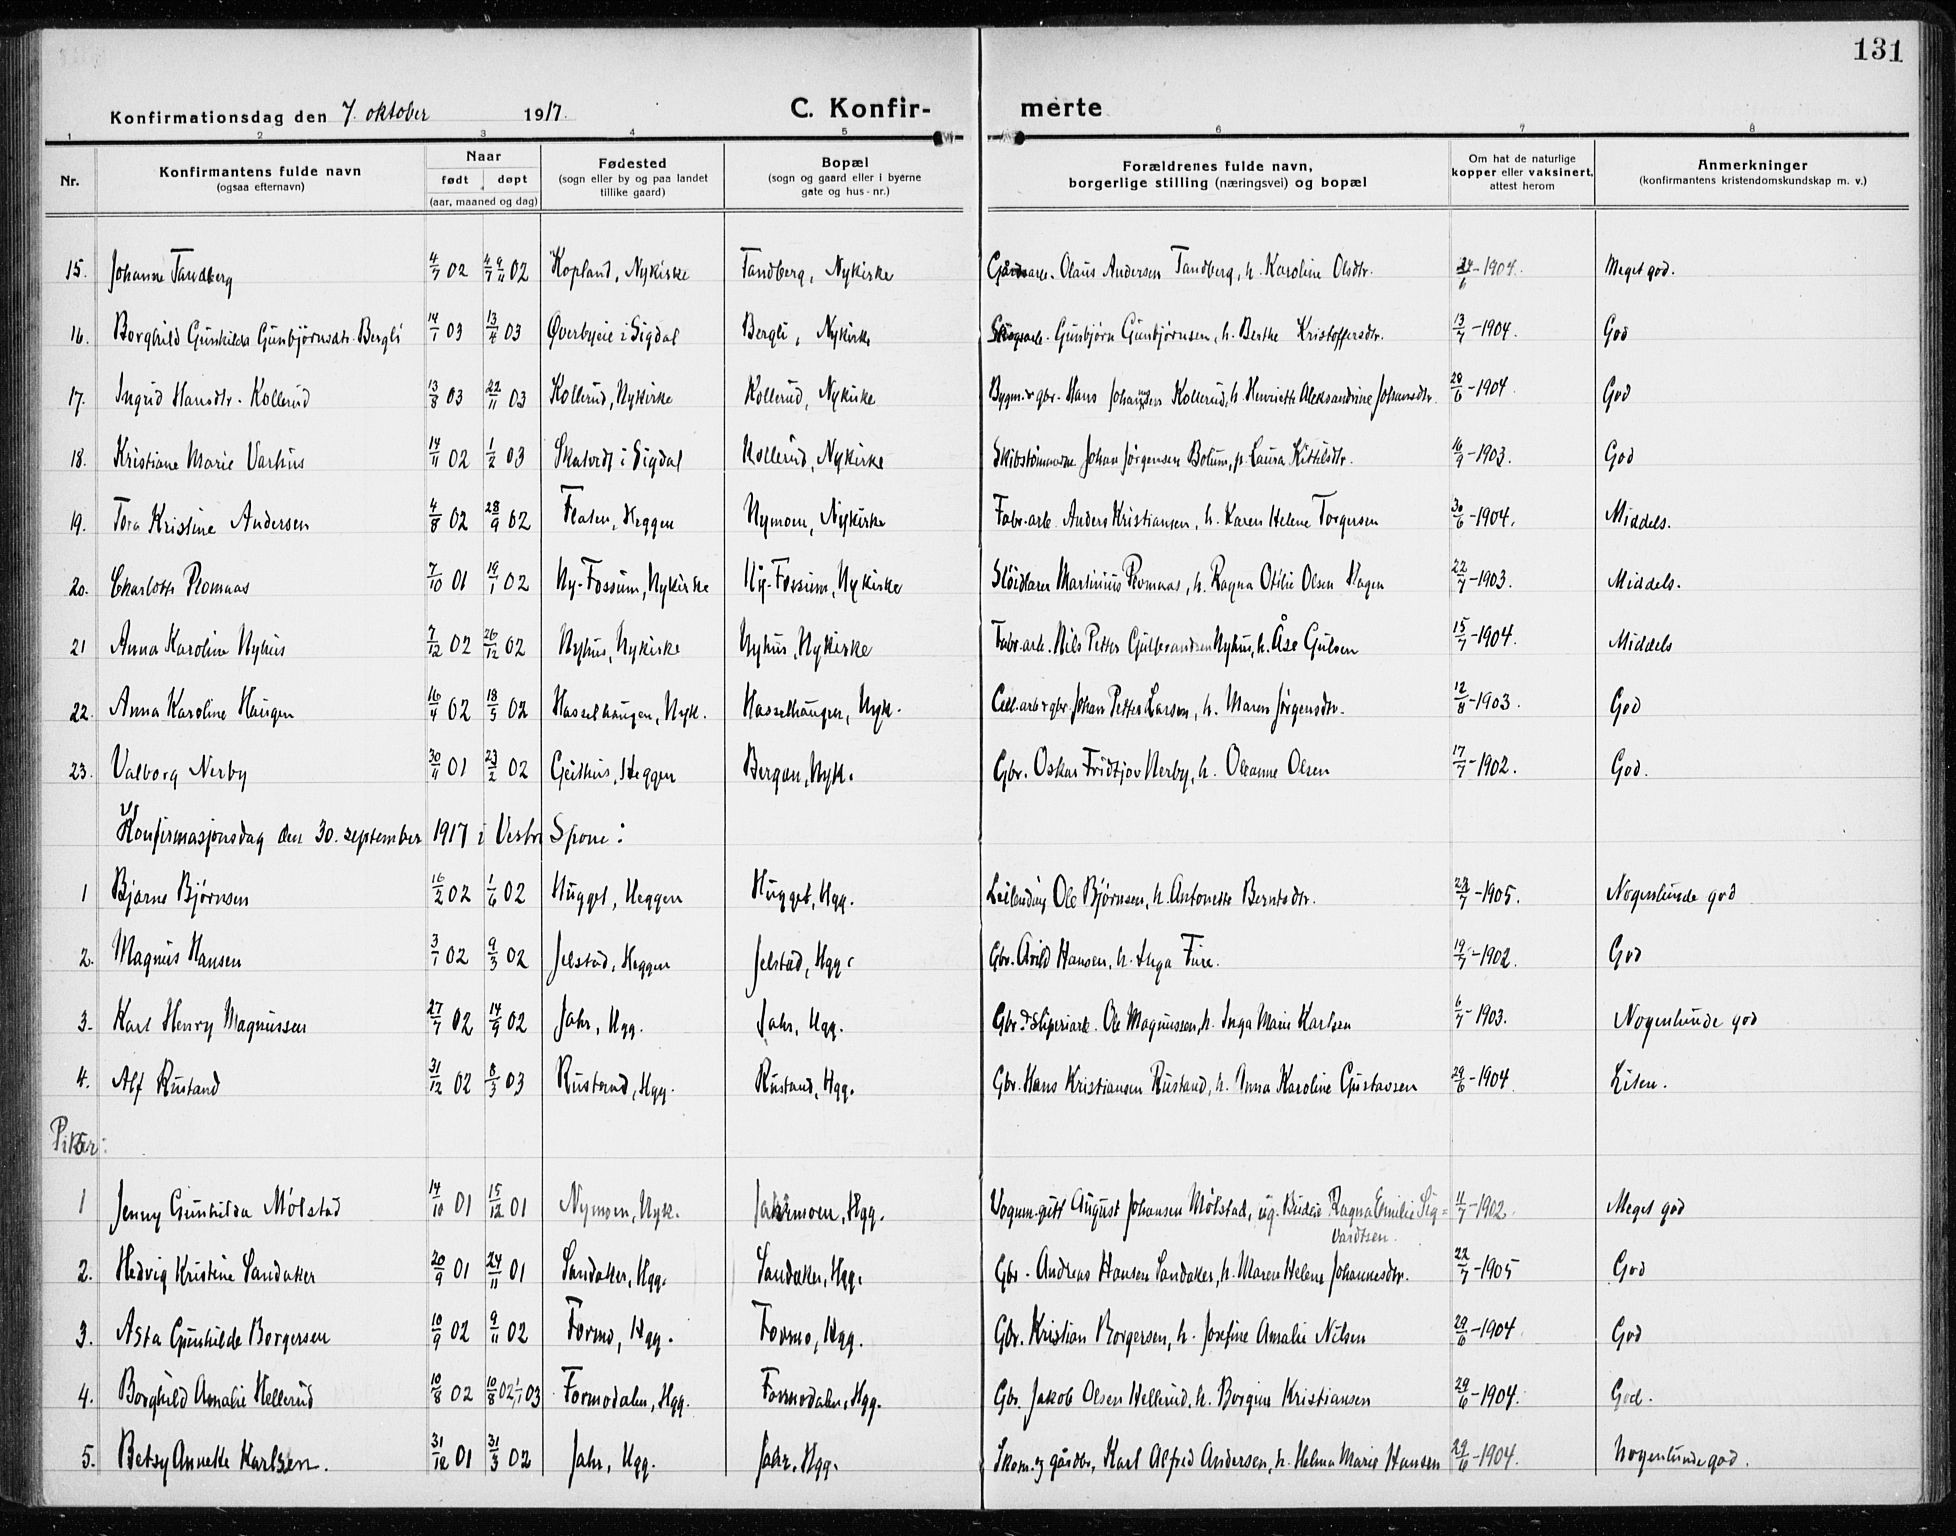 131
Konfirmationsdag den 7. oktober 1917. C. Konfirmerte
1 2 3 4 5 6 7 8
Nr. Konfirmantens fulde navn (ogsaa efternavn) Naar født døpt (aar, maaned og dag) Fødested (sogn eller by og paa landet tillike gaard) Bopæl (sogn og gaard eller i byerne gate og hus-nr.) Forældrenes fulde navn, borgerlige stilling (næringsvei) og bopæl Om hat de naturlige kopper eller vaksinert, attest herom Anmerkninger (konfirmantens kristendomskundskap m. v.)
15. Johanne Tandberg 4/7 02 4/7 9/11 02 Kopland, Nykirke Tandberg, Nykirke Gårdsarb. Olaus Andersen Tandberg, h. Karoline Olsdtr. 24/6-1904. Meget god.
16. Borghild Gunhilda Gunbjørnsdtr. Bergli 14/1 03 13/4 03 Øverbyeie i Sigdal Bergli, Nykirke Skogsarb. Gunbjørn Gunbjørnsen, h. Berthe Kristoffersdtr. 13/7-1904. God
17. Ingrid Hansdtr. Kollerud 13/8 03 22/11 03 Kollerud, Nykirke Kollerud, Nykirke Bygm. & gbr. Hans Johannsen Kollerud, h. Henriette Aleksandrine Johansdtr. 28/6-1904. God
18. Kristiane Marie Varhus 14/11 02 1/2 03 Skatvedt i Sigdal Kollerud, Nykirke Skibstømmerm. Johan Jørgensen Bolum, p. Laura Kittilsdtr. 16/9-1903. God
19. Tora Kristine Andersen 4/8 02 28/9 02 Flaten, Heggen Nymoen, Nykirke Fabr.arb. Anders Kristiansen, h. Karen Helene Torgersen 30/6-1904. Middels.
20. Charlotte Plomaas 7/10 01 19/1 02 Ny-Fossum, Nykirke Ny-Fossum, Nykirke Sløidlærer Martinius Plomaas, h. Ragna Otilie Olsen Hagen 22/7-1903. Middels.
21 Anna Karoline Nyhus 7/12 02 26/12 02 Nyhus, Nykirke Nyhus, Nykirke Fabr.arb. Nils Petter Gulbrandsen Nyhus, h. Åse Gulsen 15/7-1904. Middels
22. Anna Karoline Haugen 16/4 02 18/5 02 Hasselhaugen, Nyk. Hasselhaugen, Nyk. Cell.arb & gbr. Johan Petter Larsen, h. Maren Jørgensdtr. 12/8-1903. God
23. Valborg Nerby 30/11 01 23/2 02 Geithus, Heggen Bergan, Nyk. Gbr. Oskar Fridtjov Nerby, h. Oleanne Olsen 17/7-1902. God.
Konfirmasjonsdag den 30. september 1917 i Vestre Spone:
1 Bjarne Bjørnsen 16/2 02 1/6 02 Hugget, Heggen Hugget, Hgg. Leilending Ole Bjørnsen, h. Antonette Berntsdtr. 24/7-1905. Nogenlunde god
2. Magnus Hansen 3/1 02 9/3 02 Jelstad, Heggen Jelstad, Hgg. Gbr. Arild Hansen, h. Inga Fure. 19/7-1902. God
3. Karl Henry Magnussen 27/7 02 14/9 02 Jahr, Hgg. Jahr, Hgg. Gbr. & sliperiarb. Ole Magnussen, h. Inga Marie Karlsen 6/7-1903. Nogenlunde god
4. Alf Rustand 31/12 02 8/3 03 Rustand, Hgg. Rustand, Hgg. Gbr. Hans Kristiansen Rustand, h. Anna Karoline Gustavsen 29/6-1904. Liten.
Piker:
1 Jenny Gunhilda Mølstad 14/10 01 15/12 01 Nymoen, Nyk. Jahrmoen, Hgg. Vogum.gutt August Johansen Mølstad, ug. Budeie Ragna Emilie Sigvardtsen. 11/7-1902. Meget god
2. Hedvig Kristine Sandaker 20/9 01 24/11 01 Sandaker, Hgg. Sandaker, Hgg. Gbr. Andreas Hansen Sandaker, h. Maren Helene Johannesdtr. 22/7-1905 God
3. Asta Gunhilde Borgersen 10/9 02 9/11 02 Formo, Hgg. Formo, Hgg. Gbr. Kristian Borgersen, h. Josefine Amalie Nilsen 29/6-1904 God
4. Borghild Amalie Hellerud 10/8 02 10/8 02, 1/1 03 Formodalen, Hgg. Formodalen, Hgg. Gbr. Jakob Olsen Hellerud, h. Borgine Kristiansen 29/6-1904. God.
5. Betsy Annette Karlsen. 31/12 01 31/3 02 Jahr, Hgg. Jahr, Hgg. Skom. og gårdbr. Karl Alfred Andersen, h. Helma Marie Hansen 29/6-1904. Nogenlunde god.